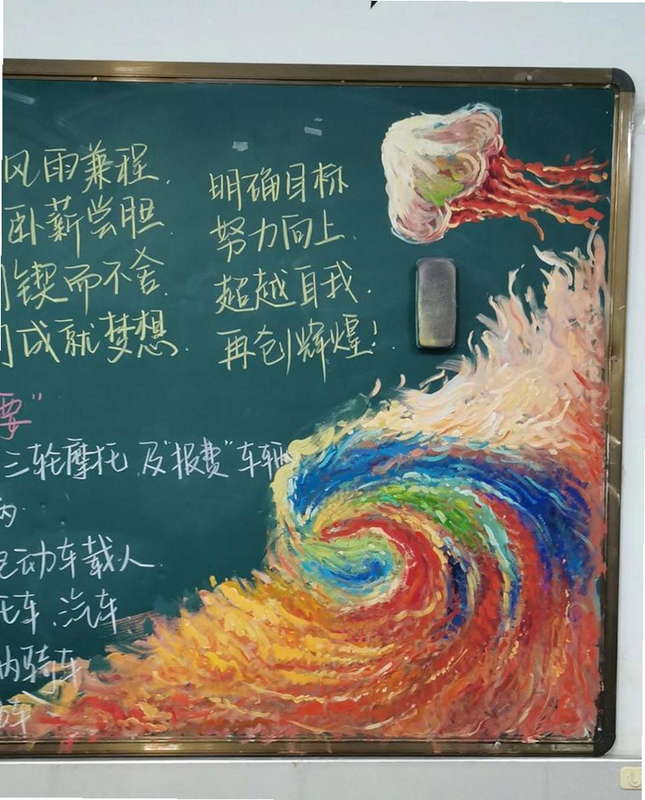 风雨兼程.
卧薪尝胆.
锲而不舍.
成就梦想.
明确目标
努力向上.
超越自我.
再创辉煌!
要"
三轮摩托及"报费"车辆
动车载人.
车、汽车
内骑车